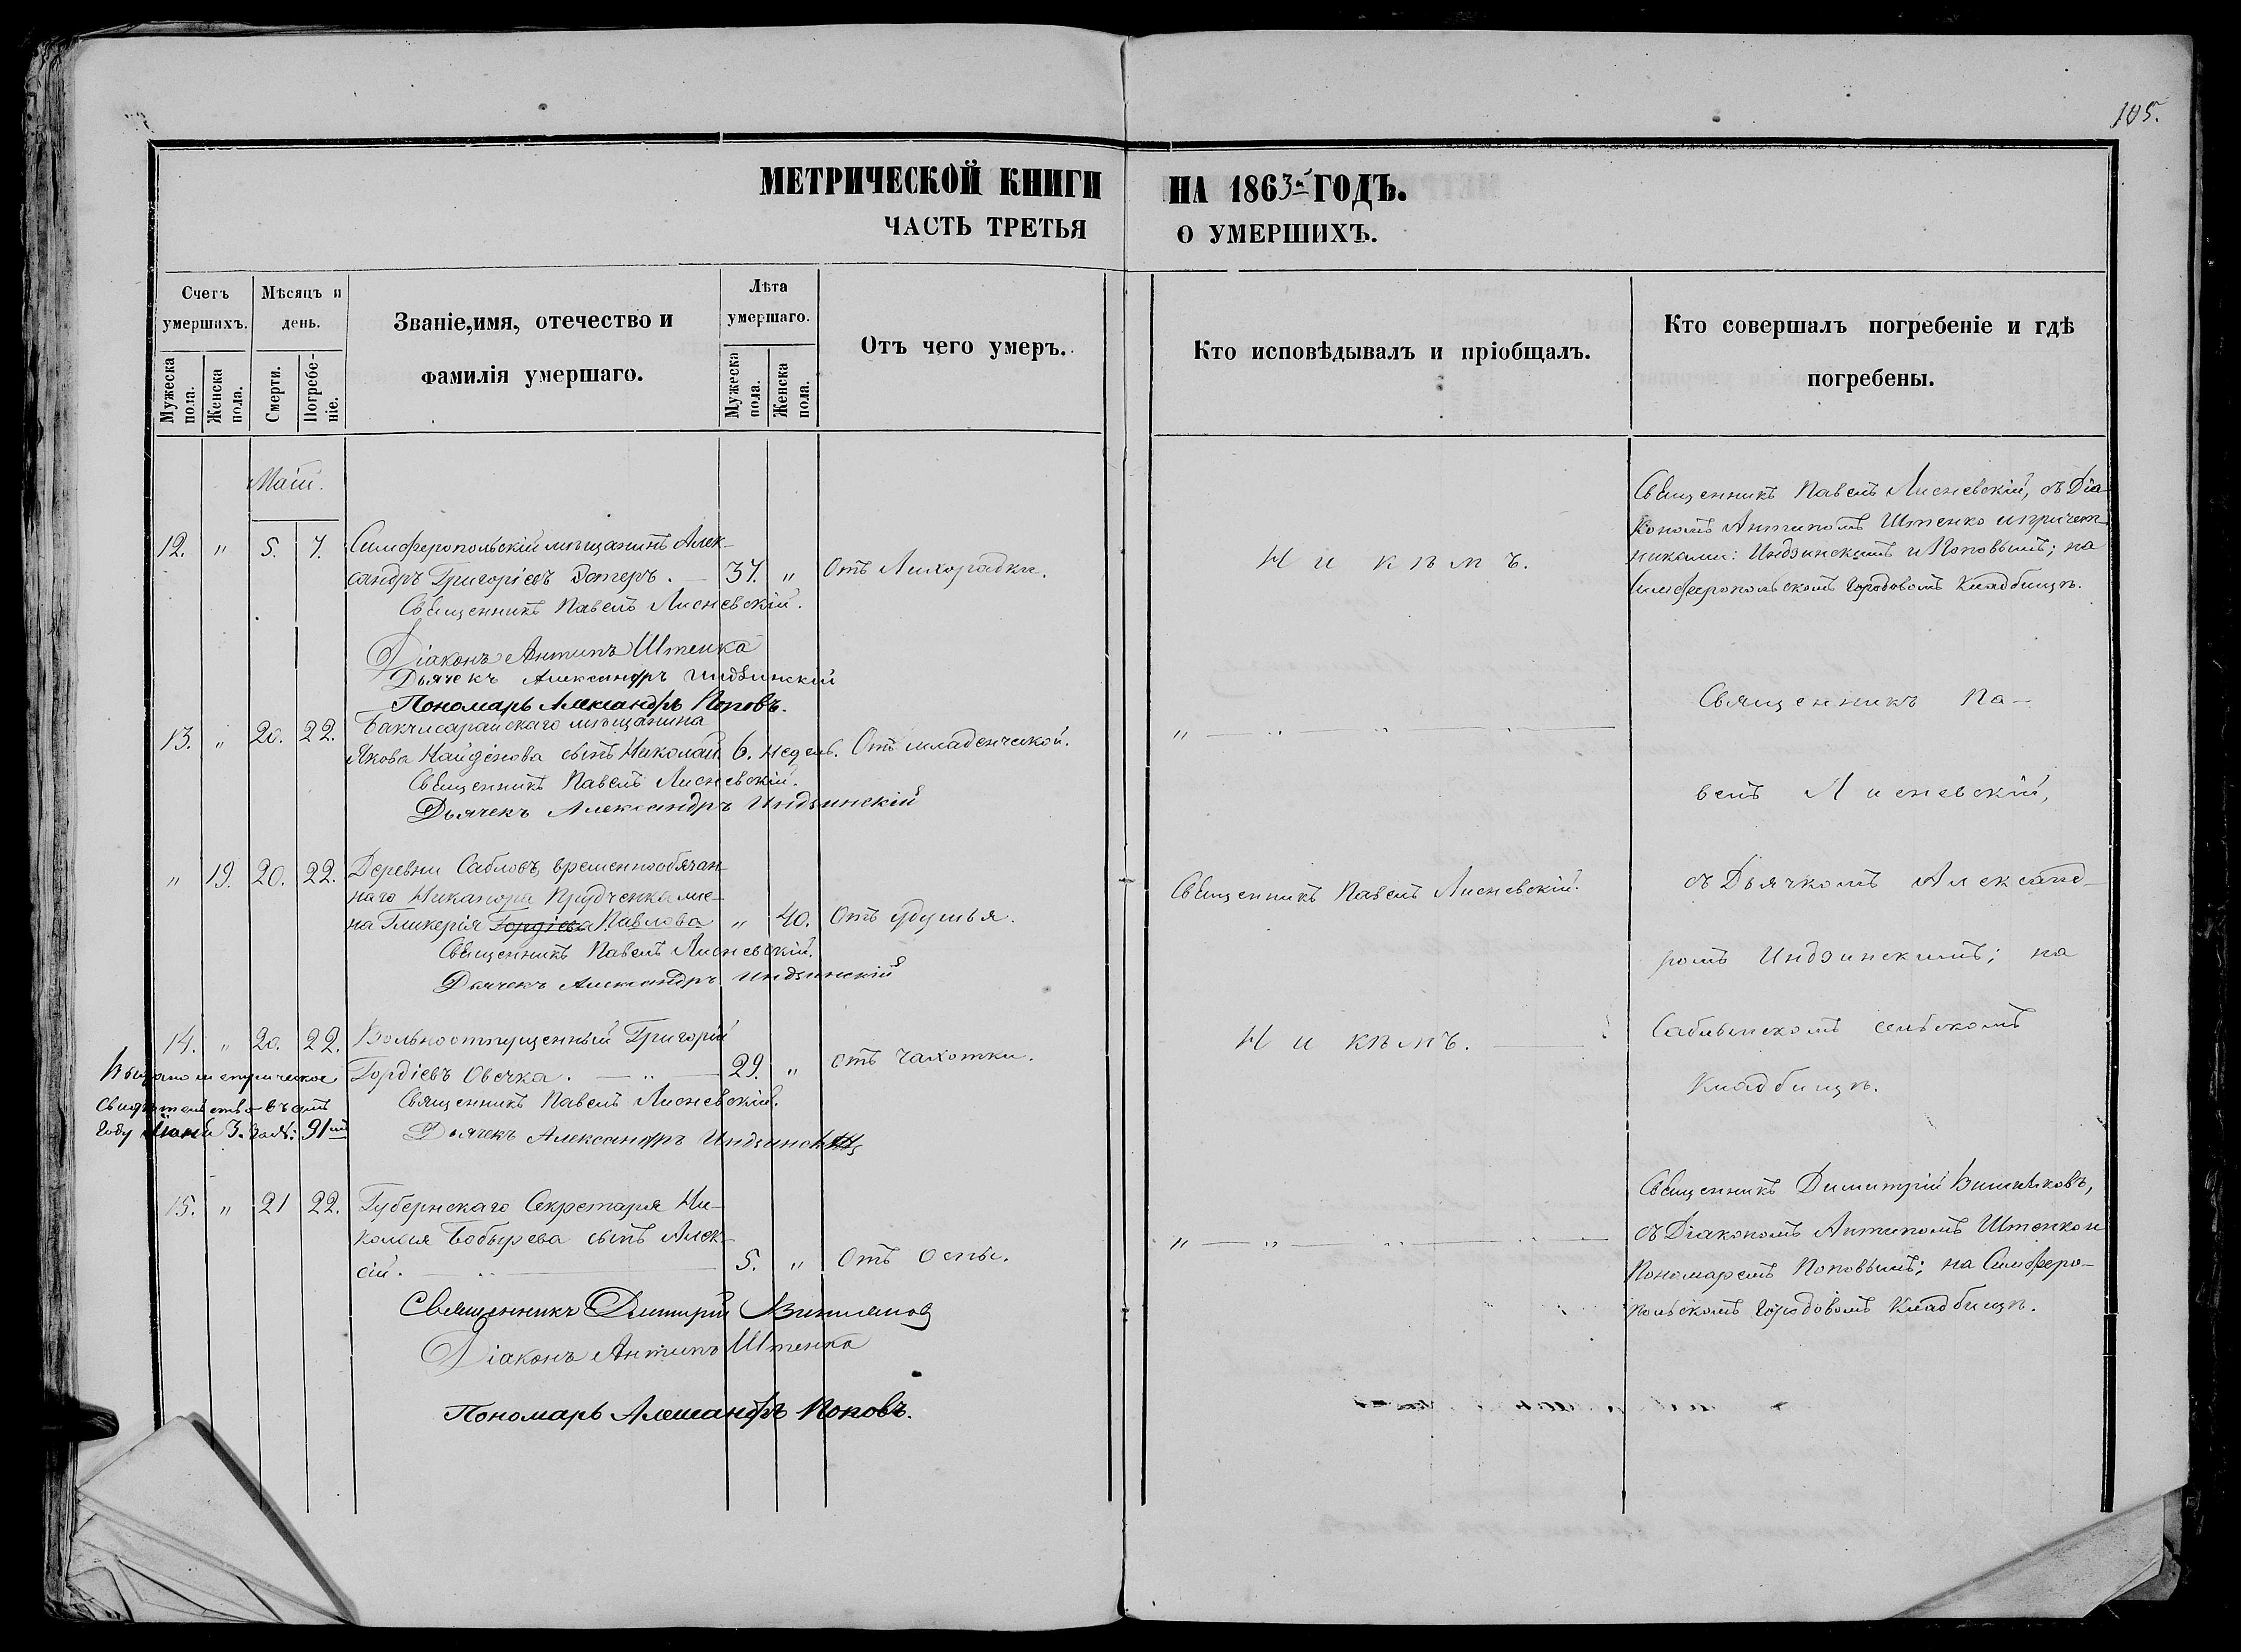 105.
МЕТРИЧЕСКОЙ КНИГИ НА 1863й ГОДЪ.
ЧАСТЬ ТРЕТЬЯ О УМЕРШИХЪ.
Счетъ умершихъ.
Мѣсяцъ и день.
Званіе, имя, отечество и фамилія умершаго.
Лѣта умершаго.
Отъ чего умеръ.
Кто исповѣдывалъ и пріобщалъ.
Кто совершалъ погребеніе и гдѣ погребены.
Мужеска пола.
Женска пола.
Смерти.
Погребеніе.
Мужеска пола.
Женска пола.
Маій.
12. " 5. 7. Симферопольскій мѣщанинъ Алек-
сандръ Григоріевъ 37. " Отъ Лихорадки.
Никѣмъ.
Священникъ Павелъ Лисневскій, съ Діа-
кономъ Антипомъ Штенко и причет-
никами: Индзинскимъ и Поповымъ; на
Симферопольскомъ Городовомъ Кладбищѣ.
Священникъ Павелъ Лисневскій.
Діаконъ Антипъ Штенка
Дьячекъ Александръ Индзинскій
Пономарь Александръ Поповъ.
13. " 20. 22. Бакчисарайскаго мѣщанина
Якова Найденова сынъ Николай 6. недель. Отъ младенческой.
Священникъ Павелъ Лисневскій.
Дьячекъ Александръ Индзинскій
" 19. 20. 22. ДеревниАбловъ временнообязан-
наго Никанора Прудченка же-
на Гликерія Гордіева Павлова " 40. Отъ удушья.
Священникъ Павелъ Лисневскій.
Священникъ Павелъ Лисневскій.
Дьячекъ Александръ Индзинскій
14. " 20. 22. Вольноотпущенный Григорій
Гордіевъ Овечка. 29. " отъ чахотки.
Никѣмъ.
Священникъ Павелъ Лисневскій.
Дьячекъ Александръ Индзинскій
Выдано метрическое
свидѣтельство въ
году Іюня 3. за №: 91мъ
Священникъ Па-
велъ Лисневскій,
съ Дьячкомъ Александ-
ромъ Индзинскимъ; на
Саблынскомъ сельскомъ
Кладбищѣ.
15. " 21 22. Губернскаго Секретаря Ни-
колая Бобырева сынъ Алек-
сій. 5. " Отъ Оспы.
Священникъ Димитрій
съ Діакономъ Антипомъ Штенко и
Пономаремъ Поповымъ; на Симферо-
польскомъ Городовомъ Кладбищѣ.
Священникъ Димитрій
Діаконъ Антипъ Штенка
Пономарь Александръ Поповъ.